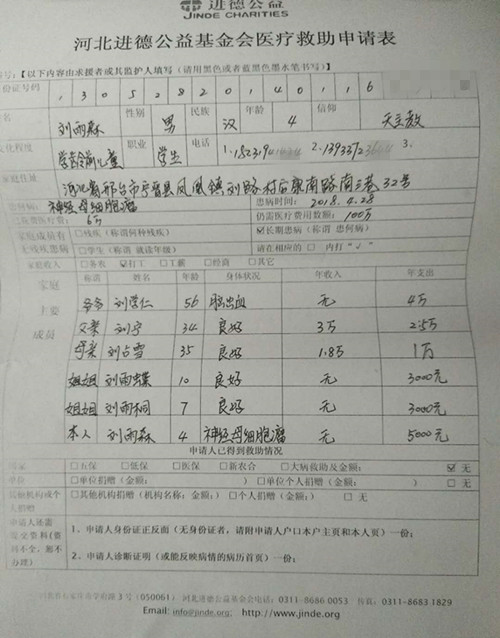 进德公益
JINDE CHARITIES
河北进德公益基金会医疗救助申请表
【以下内容由求援者或其监护人填写(请用黑色或者蓝黑色墨水笔书写)】
份证号码 1 3 0 5 2 8 2 0 1 4 0 1 1 6
名 刘雨森 性别 男 民族 汉 年龄 4 信仰 天主教
文化程度 学龄前儿童 职业 学生 电话 1. 2. 3.
家庭住址 河北省邢台市宁晋县凤凰镇刘路村后梁南路南三巷32号
患何病: 神经母细胞瘤 患病时间: 2018.4.28
已花费医疗费: 6万 仍需医疗费用数额: 100万
家庭成员有 □残疾(称谓何种残疾) ☑长期患病(称谓 患何病)
无残疾患病 □学生(称谓 就读年级) 请在相应的 □ 内打“√”
家庭收入 □务农 ☑打工 □工薪 □经商 □其它
家庭主要成员 称谓 姓名 年龄 身体状况 年收入 年支出
爷爷 刘学仁 56 脑出血 无 4万
父亲 刘宁 34 良好 3万 2.5万
母亲 刘占雪 35 良好 1.8万 1万
姐姐 刘雨蝶 10 良好 无 3000元
姐姐 刘雨桐 7 良好 无 3000元
本人 刘雨森 4 神经母细胞瘤 无 5000元
申请人已得到救助情况
国家 □五保 □低保 □医保 □新农合 □大病救助及金额: ☑ 无
单位 □单位捐赠(金额: ) □单位个人捐赠(金额: ) □ 无
其他机构或个人捐赠 □其他机构捐赠(机构名称; 金额:) □个人捐赠(金额:) □ 无
申请人还需提交资料(资料不全, 恕不办理) 1、申请人身份证正反面(无身份证者, 请附申请人户口本户主页和本人页)一份;
2、申请人诊断证明(或能反映病情的病历首页)一份;
3 号 (050061) 河北进德公益基金会电话: 0311-8686 0053 传真: 0311-8683 1829
Email: info@jinde.org; http://www.jinde.org